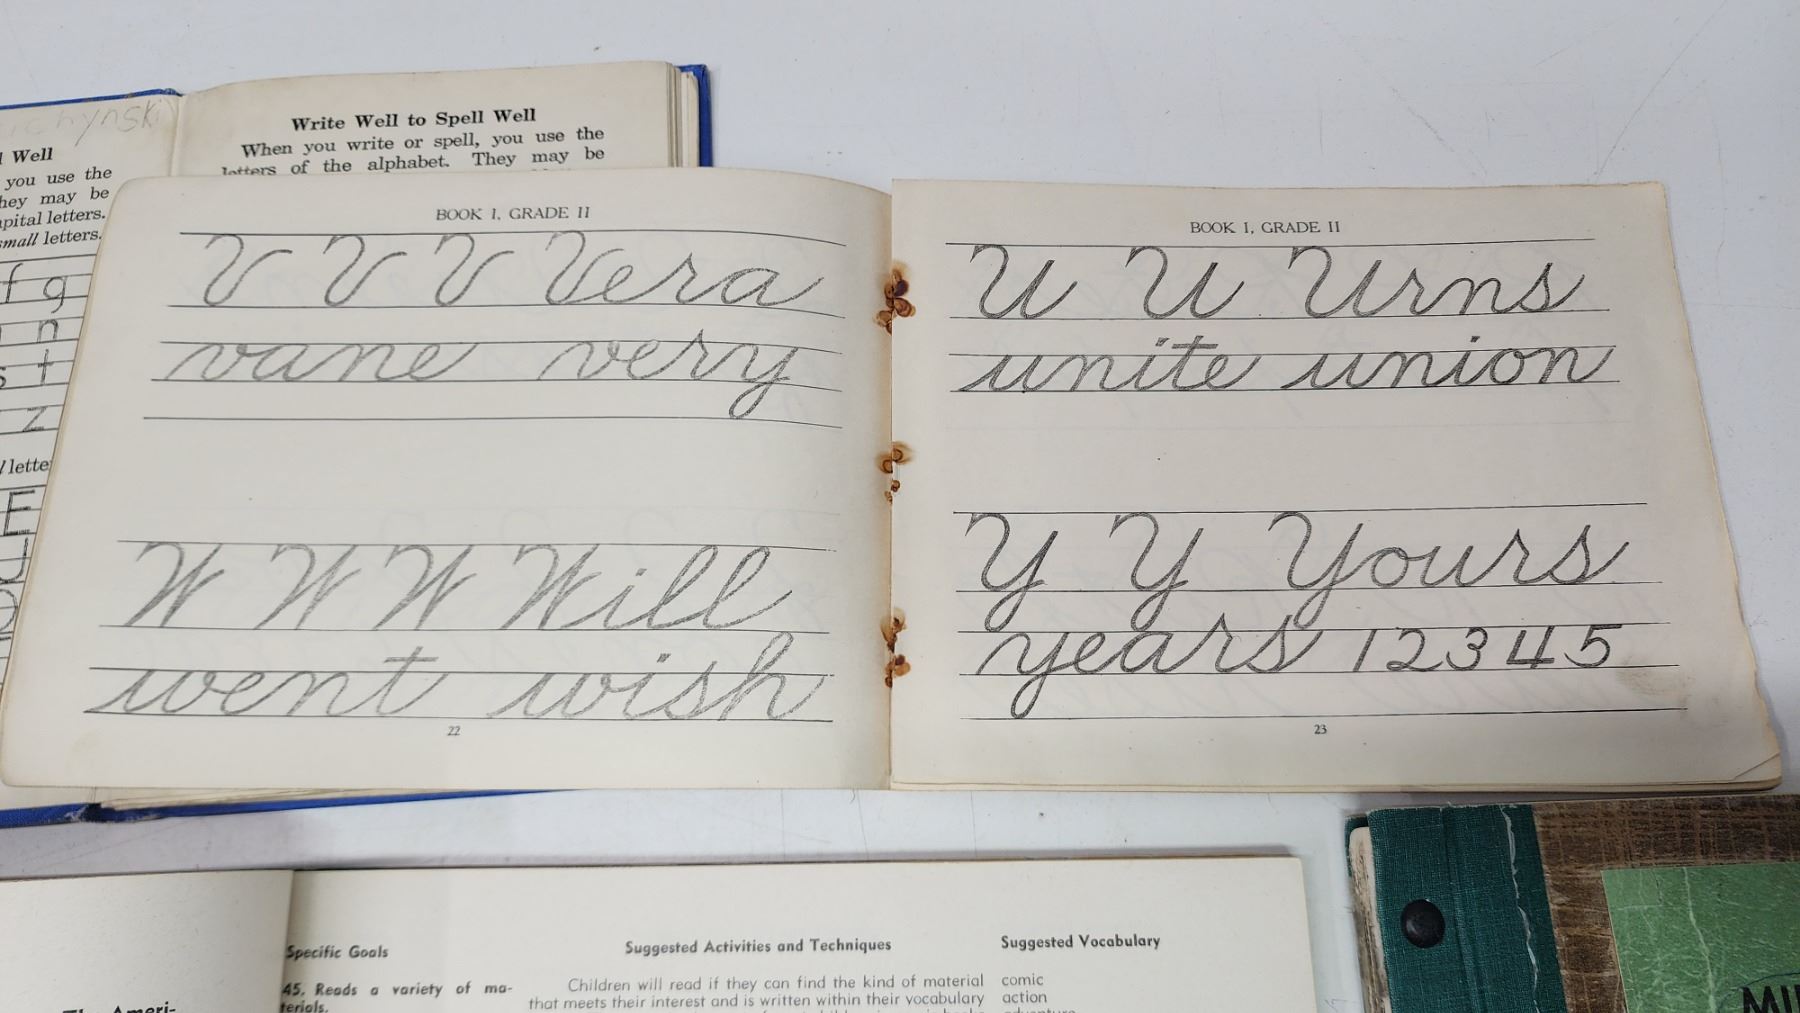 Write Well to Spell Well
When you write or spell, you use the
letters of the alphabet. They may be
Well
you use the
may be
letters.
small letters.
f g
n
s t
z
E
BOOK 1, GRADE II
V V V Vera
vane very
W W W Will
went wish
22
BOOK 1, GRADE II
U U Urns
unite union
Y Y Yours
years 1 2 3 4 5
23
Specific Goals
45. Reads a variety of ma-
terials.
Suggested Activities and Techniques
Children will read if they can find the kind of material
that meets their interest and is written within their vocabulary
Suggested Vocabulary
comic
action
adventure
The Ameri-